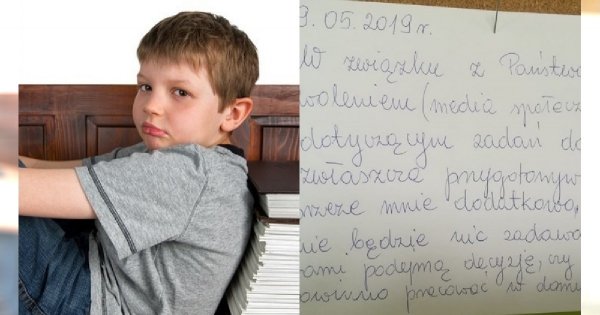 9.05.2019r.
W związku z Państwa
waleniem (media społecz
dotyczącym zadań do
zwłaszcza przygotowyw
przeze mnie dodatkowo,
nie będzie nic zadawa
ami podejmą decyzję, czy
owinno pracować w domu